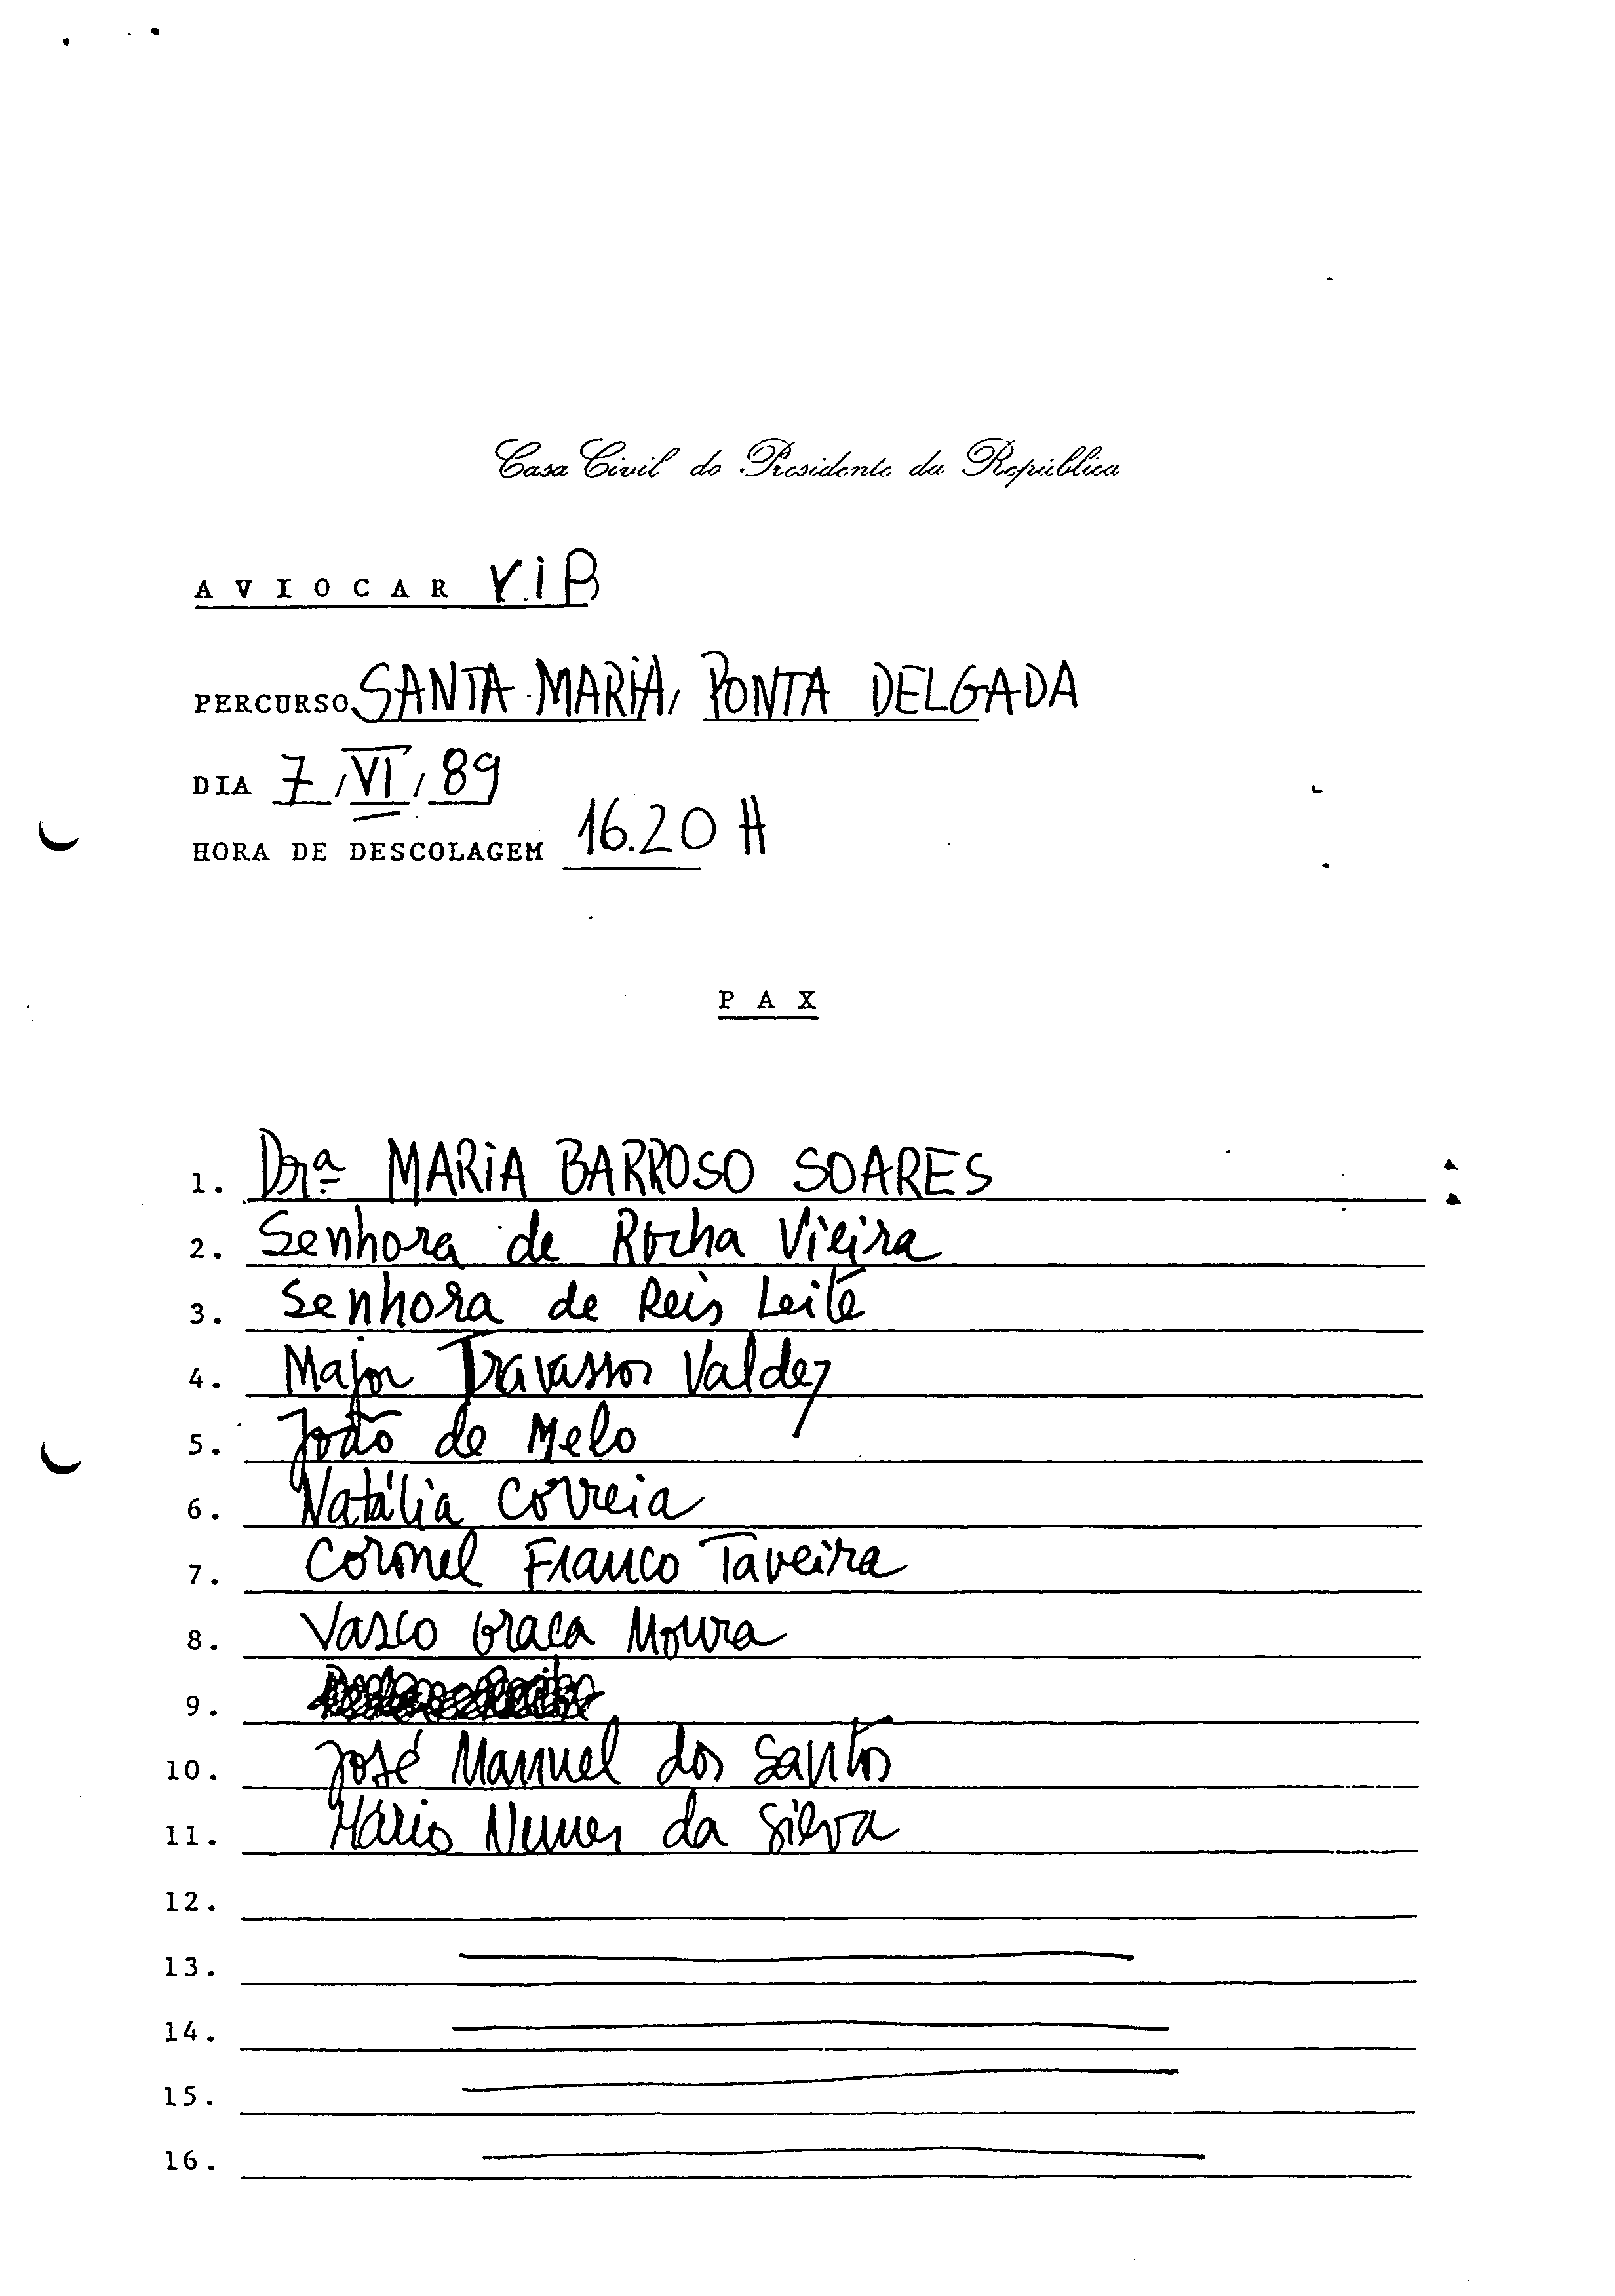 Casa Civil do Presidente da República
AVIOCAR V.i.P
PERCURSO SANTA MARIA, PONTA DELGADA
DIA 7 / VI / 89
HORA DE DESCOLAGEM 16.20 H
PAX
1. Drª MARIA BARROSO SOARES
2. Senhora de Rocha Vieira
3. Senhora de Reis Leite
4. Major Travassos Valdez
5. João de Melo
6. Natália Correia
7. Coronel Franco Taveira
8. Vasco Graça Moura
9.
10. José Manuel dos Santos
11. Mário Nunes da Silva
12.
13.
14.
15.
16.